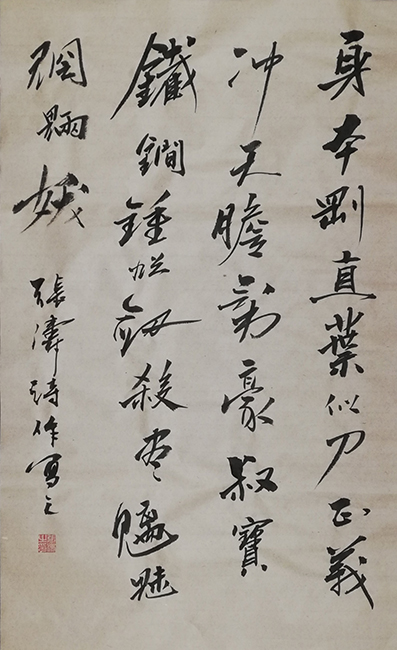 身本剛直葉似刀正義
冲天膽豪叔寶
鐵鐧鍾馗劍殺盡魑魅
魍魎妖 張濤詩作寫之